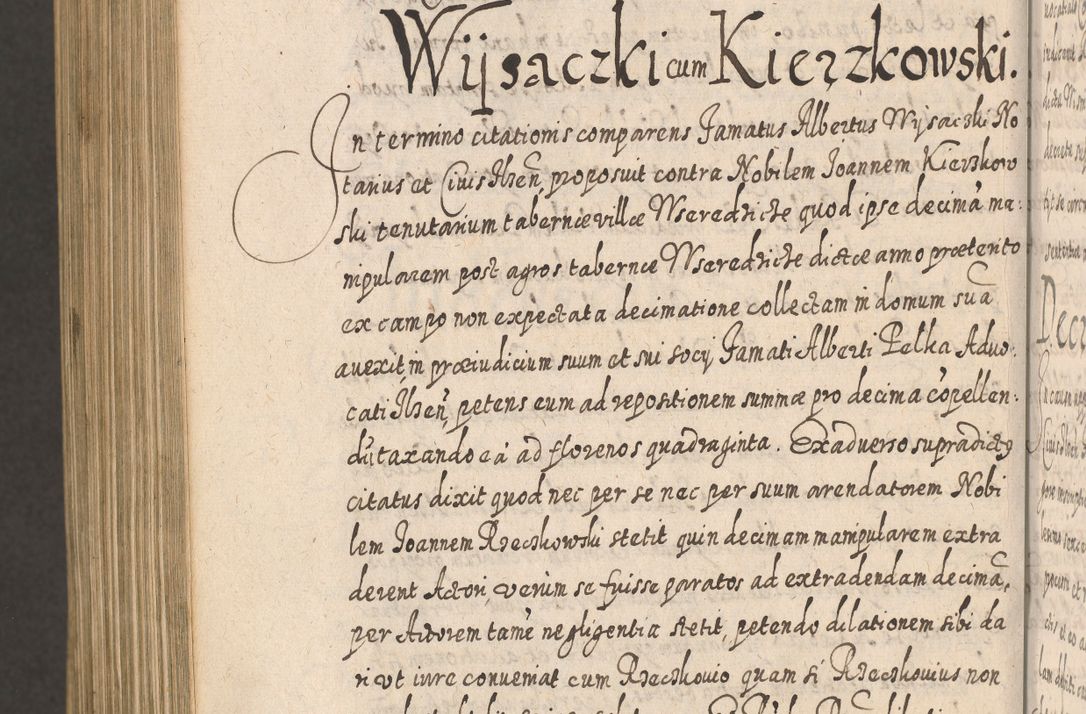 Wysaczki cum Kierzkowski.
In termino citationis comparens Famatus Albertus Wysaczki No
tarius et Civis Ilzen̄, proposuit contra Nobilem Joannem Kierzkow
ski tenutarium tabernæ villæ Wseredziche quod ipse decimā ma:
nipularem post agros tabernæ Wseredziche dictæ anno præterito
ex campo non expectata decimatione collectam in domum suā
avexit, in præiudicium suum et sui socij, Famati Alberti Pełka Advo:
cati Ilzen̄, petens eum ad repositionem summæ pro decima cōpellen:
dū taxando eā ad florenos quadraginta. Ex adverso supradictus
citatus dixit quod nec per se nec per suum arendatorem Nobi
lem Joannem Rzeczkowski stetit quin decimam manipularem extra
derent Actori, verùm se fuisse paratos ad extradendam decimā,
per Actorem tamē negligentia stetit, petendo dilationem sibi da
ri vt iure conveniat cum Rzeczkovio quam si Rzeczkovius non